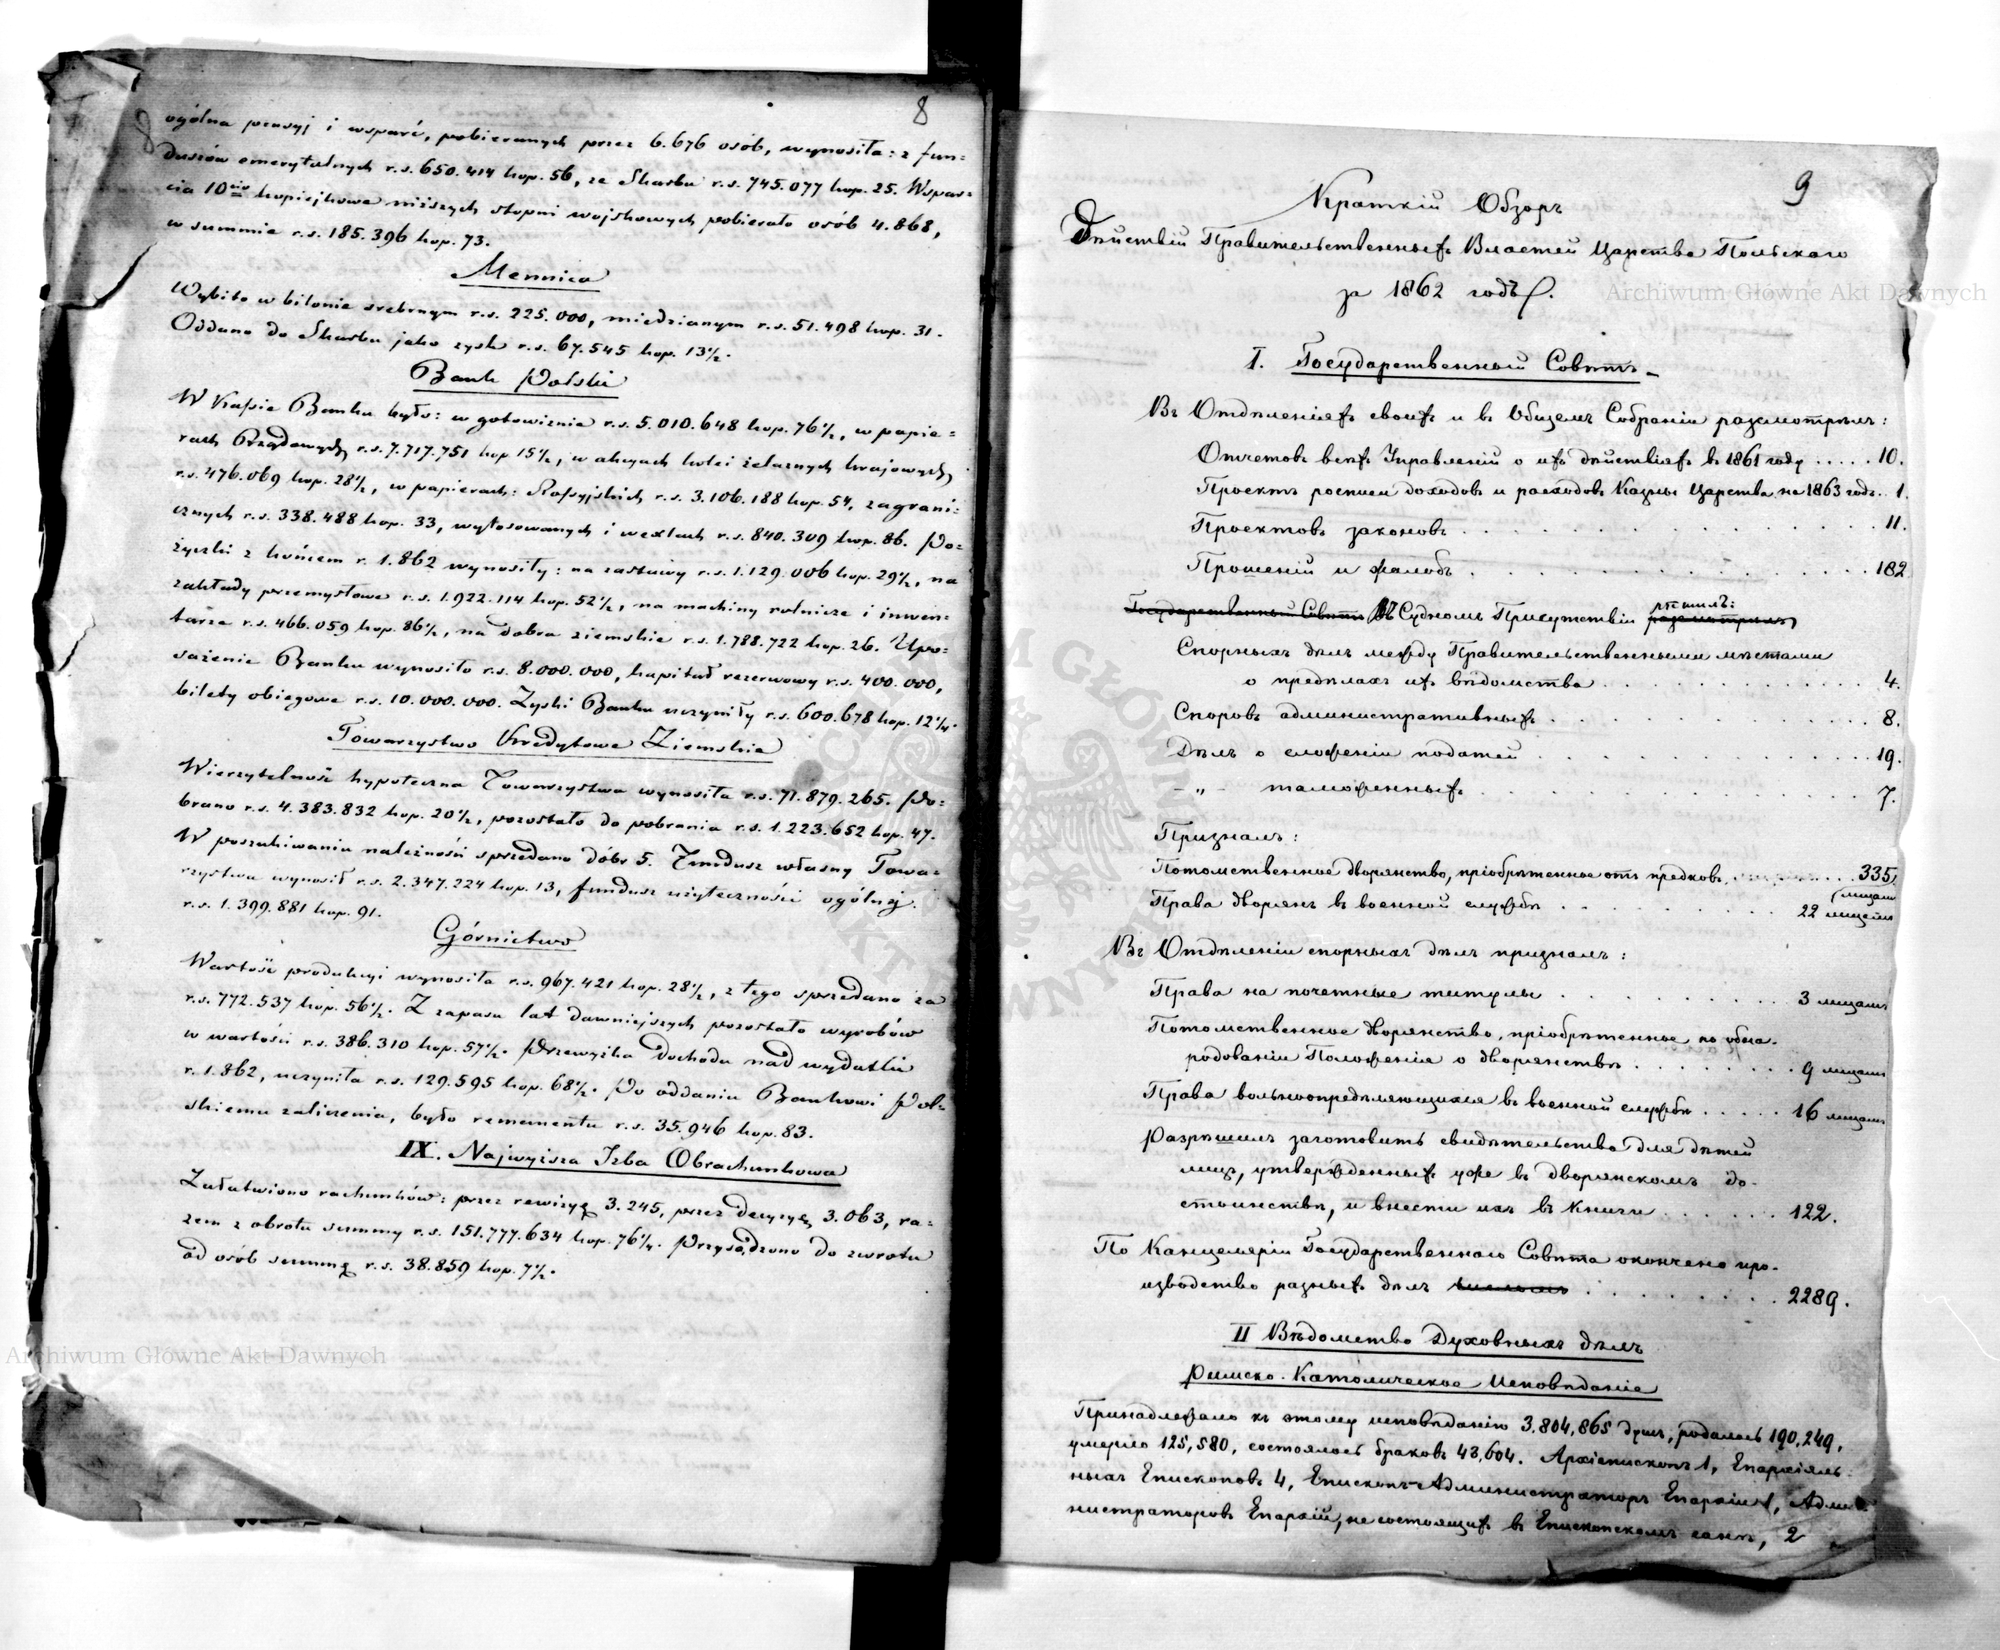 8
ogólna pensyj i wsparć, pobieranych przez 6.676 osób, wynosiła: z fun=
duszów emerytalnych r.s. 650.414 kop. 56, ze Skarbu r.s. 745.077 kop. 25. Wspar=
cia 10cio kopiejkowe niższych stopni wojskowych pobierało osób 4.868,
w summie r.s. 185.396 kop. 73.
Mennica
Wybito w bilonie srebrnym r.s. 225.000, miedzianym r.s. 51.498 kop. 31.
Oddano do Skarbu jako zysk r.s. 67.545 kop. 13½.
Bank Polski
W Kassie Banku było: w gotowiznie r.s. 5.010.648 kop. 76½, w papie=
rach Rządowych r.s. 7.717.751 kop 15½, w akcyach kolei żelaznych krajowych
r.s. 476.069 kop. 28½, w papierach: Rossyjskich r.s. 3.106.188 kop. 54, zagrani=
cznych r.s. 338.488 kop. 33, wylosowanych i wexlach r.s. 840.309 kop. 86. Po=
życzki z końcem r. 1.862 wynosiły: na zastawy r.s. 1.129.006 kop. 29½, na
zakłady przemysłowe r.s. 1.922.114 kop. 52½, na machiny rolnicze i inwen=
tarze r.s. 466.059 kop. 86½, na dobra ziemskie r.s. 1.788.722 kop. 26. Upo=
sażenie Banku wynosiło r.s. 8.000.000, kapitał rezerwowy r.s. 400.000,
bilety obiegowe r.s. 10.000.000. Zyski Banku uczyniły r.s. 600.678 kop. 12¼.
Towarzystwo Kredytowe Ziemskie
Wierzytelność hypoteczna Towarzystwa wynosiła r.s. 71.879.265. Po=
brano r.s. 4.383.832 kop. 20½, pozostało do pobrania r.s. 1.223.652 kop. 47.
W poszukiwaniu należności sprzedano dóbr 5. Fundusz własny Towa=
rzystwa wynosił r.s. 2.347.224 kop. 13, fundusz użyteczności ogólnej
r.s. 1.399.881 kop. 91.
Górnictwo
Wartość produkcyi wynosiła r.s. 967.421 kop. 28½, z tego sprzedano za
r.s. 772.537 kop. 56½. Z zapasu lat dawniejszych pozostało wyrobów
w wartości r.s. 386.310 kop. 57½. Przewyżka dochodu nad wydatki
r. 1.862, uczyniła r.s. 129.595 kop. 68½. Po oddaniu Bankowi Pol=
skiemu zaliczenia, było remanentu r.s. 35.946 kop. 83.
IX. Najwyższa Izba Obrachunkowa
Załatwiono rachunków: przez rewizyę 3.245, przez decyzyę 3.063, ra=
zem z obrotu summy r.s. 151.777.634 kop. 76¼. Przysądzono do zwrotu
od osób summę r.s. 38.859 kop. 7½.
9
Краткій Обзоръ
Дѣйствій Правительственныхъ Властей Царства Польскаго
за 1862 годъ.
I. Государственный Совѣтъ
Въ Отдѣленіяхъ своихъ и въ Общемъ Собраніи разсмотрѣлъ:
Отчетовъ всѣхъ Управленій о ихъ дѣйствіяхъ въ 1861 году ..... 10.
Проектъ росписи доходовъ и расходовъ Казны Царства на 1863 годъ.. 1.
Проектовъ законовъ ..... 11.
Прошеній и жалобъ ..... 182
Государственный Совѣтъ Въ Судномъ Присутствіи рѣшилъ: разсмотрѣлъ
Спорныхъ дѣлъ между Правительственными мѣстами
о предѣлахъ ихъ вѣдомства ..... 4.
Споровъ административныхъ ..... 8.
Дѣлъ о сложеніи податей ..... 19.
- „ - таможенныхъ ..... 7.
Призналъ:
Потомственное дворянство, пріобрѣтенное отъ предковъ, ..... 335 лицамъ
Права дворянъ въ военной службѣ ..... 22 лицамъ
Въ Отдѣленіи спорныхъ дѣлъ призналъ:
Права на почетные титулы ..... 3 лицамъ
Потомственное дворянство, пріобрѣтенное по обна-
родованіи Положенія о дворянствѣ ..... 9 лицамъ
Права вольноопредѣляющихся въ военной службѣ ..... 16 лицамъ
Разрѣшилъ заготовить свидѣтельства для дѣтей
лицъ, утвержденныхъ уже въ дворянскомъ до-
стоинствѣ, и внести ихъ въ книги ..... 122.
По Канцеляріи Государственнаго Совѣта окончено про-
изводство разныхъ дѣлъ ..... 2289.
II Вѣдомство Духовныхъ дѣлъ
Римско-Католическое Исповѣданіе
Принадлежало къ этому исповѣданію 3.804,865 душъ, родилось 190,249,
умерло 125,580, состоялось браковъ 43,604. Архіепископъ 1, Епархіаль-
ныхъ Епископовъ 4, Епископъ-Администраторъ Епархіи 1, Адми-
нистраторовъ Епархій, не состоящихъ въ Епископскомъ санѣ, 2
Archiwum Główne Akt Dawnych
Archiwum Główne Akt Dawnych
ARCHIWUM GŁÓWNE AKT DAWNYCH